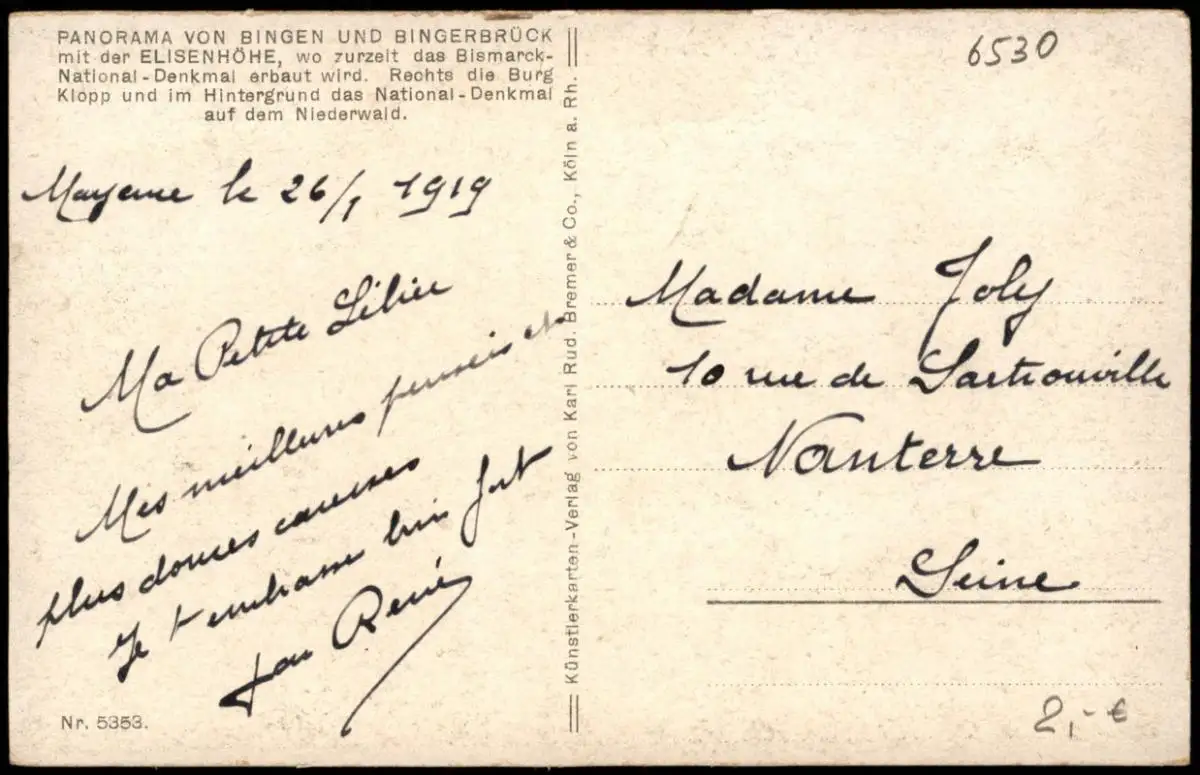 PANORAMA VON BINGEN UND BINGERBRÜCK
mit der ELISENHÖHE, wo zurzeit das Bismarck-
National-Denkmal erbaut wird. Rechts die Burg
Klopp und im Hintergrund das National-Denkmal
auf dem Niederwald.
Mayence le 26/1 1919
Ma Petite Lilie
Mes meilleures pensées et
plus douces caresses
Je t'embrasse bien fort
ton René
Nr. 5353.
Künstlerkarten-Verlag von Karl Rud. Bremer & Co., Köln a. Rh.
6530
Madame Joly
10 rue de Sartrouville
Nanterre
Seine
2,- €